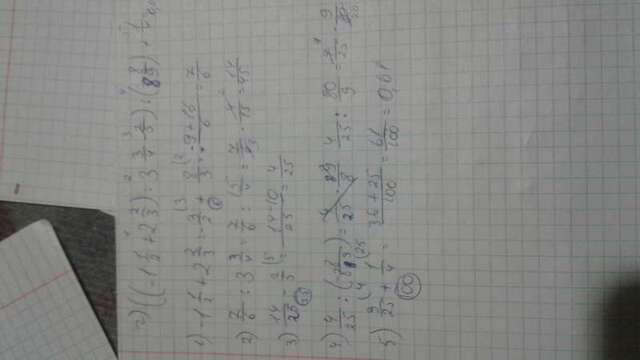 2) ((-1 1/2 + 2 2/3) : 3 3/4 - 2/5) : (8 8/9) + 1/4
1) -1 1/2 + 2 2/3 = -3/2 + 8/3 = -9+16/6 = 7/6
2) 7/6 : 3 3/4 = 7/6 : 15/4 = 7/6 · 4/15 = 14/45
3) 14/25 - 2/5 = 14-10/25 = 4/25
4) 4/25 : (8 8/9) = 4/25 · 9/8 4/25 : 80/9 = 4/25 · 9/80
5) 9/25 + 1/4 = 36+25/100 = 61/100 = 0,61